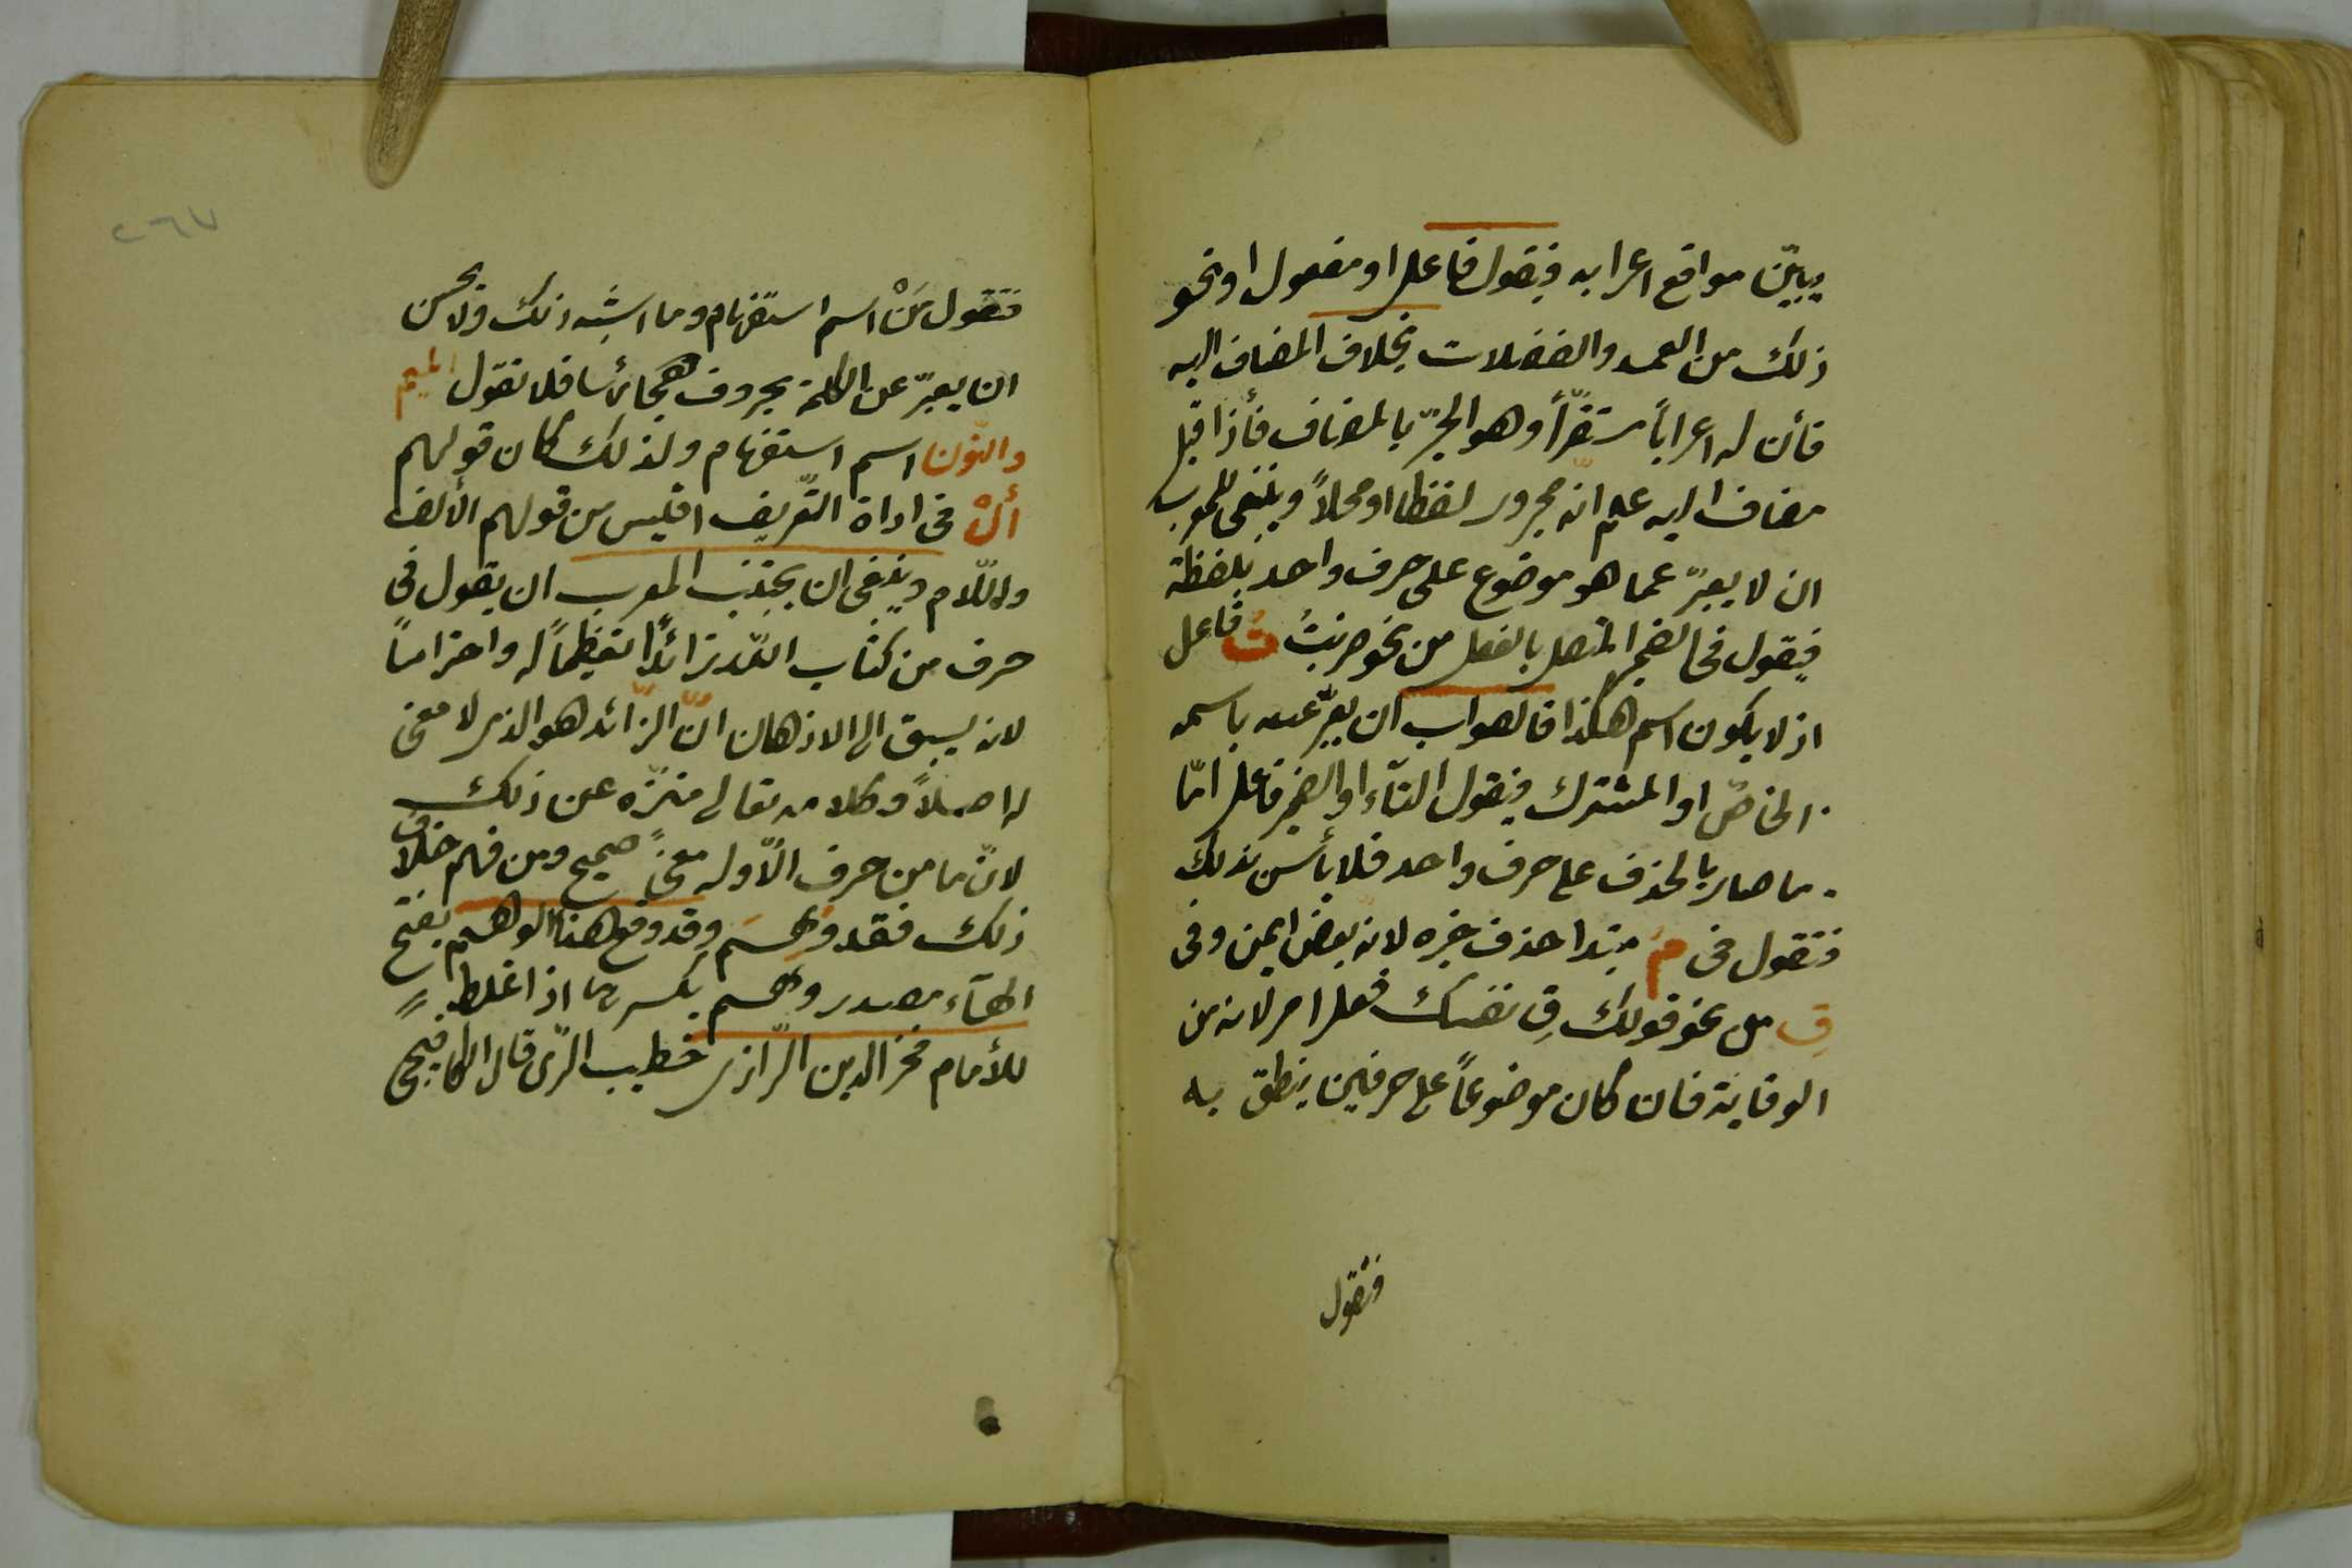 يبيّن مواقع اعرابه فيقول فاعل او مفعول او نحو
ذلك من العمد والفضلات بخلاف المضاف اليه
فأن له اعراباً مستقرّاً وهو الجرّ بالمضاف فأذا قيل
مضاف اليه علم انّه مجرور لفظا او محلاً وينبغي للمعرب
ان لا يعبرّ عما هو موضوع على حرف واحد بلفظة
فيقول في الضمير المتصل بالفعل من نحو ضربتُ تُ فاعل
اذ لا يكون اسم هكذا فالصواب ان يعبّر عنه باسمه
الخاصّ او المشترك فيقول التّاء او الضمير فاعل امّا
ما صار بالحذف على حرف واحد فلا بأس بذلك
فتقول في مُ مبتدا حذف خبره لانّه بعض ايمن وفى
قِ من نحو قولك قِ نفسك فعل امر لانه من
الوقاية فان كان موضوعاً على حرفين ينطق به
فتقول
٢٦٧
فتقول مَنْ اسم استفهام وما اشبه ذلك ولا يحسن
ان يعبّر عن الكلمة بحروف هجائها فلا تقول الميم
والنّون اسم استفهام ولذلك كان قولهم
أَلْ فى اداة التّعريف اقيس من قولهم الألف
واللّام وينبغى ان يجتنب المعرب ان يقول فى
حرف من كتاب اللّه زائدًا تعظيماً له واحتراماً
لانه يسبق الى الاذهان انّ الزّائد هو الذى لا معنى
له اصلاً وكلامه تعالى منزّه عن ذلك
لانّ ما من حرف الّا وله معنىً صحيح ومن فهم خلاف
ذلك فقد وَهِمَ وقد وقع هذا الوهم بفتح
الهآء مصدر وهم بكسرها اذا غلط
للأمام فخر الدين الرّازى خطيب الرّى قال الكافيجى